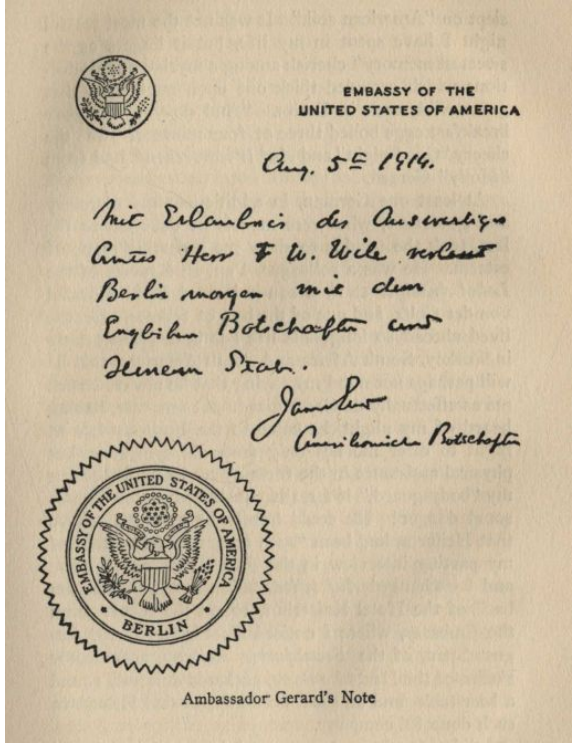 EMBASSY OF THE
UNITED STATES OF AMERICA
Aug. 5th 1914.
Mit Erlaubnis des Auswertigen
Amtes Herr F W. Wile verlasst
Berlin morgen mit dem
Englishen Botschafter und
seinem Stab.
Amerikanische Botschafter
EMBASSY OF THE UNITED STATES OF AMERICA
BERLIN
Ambassador Gerard's Note